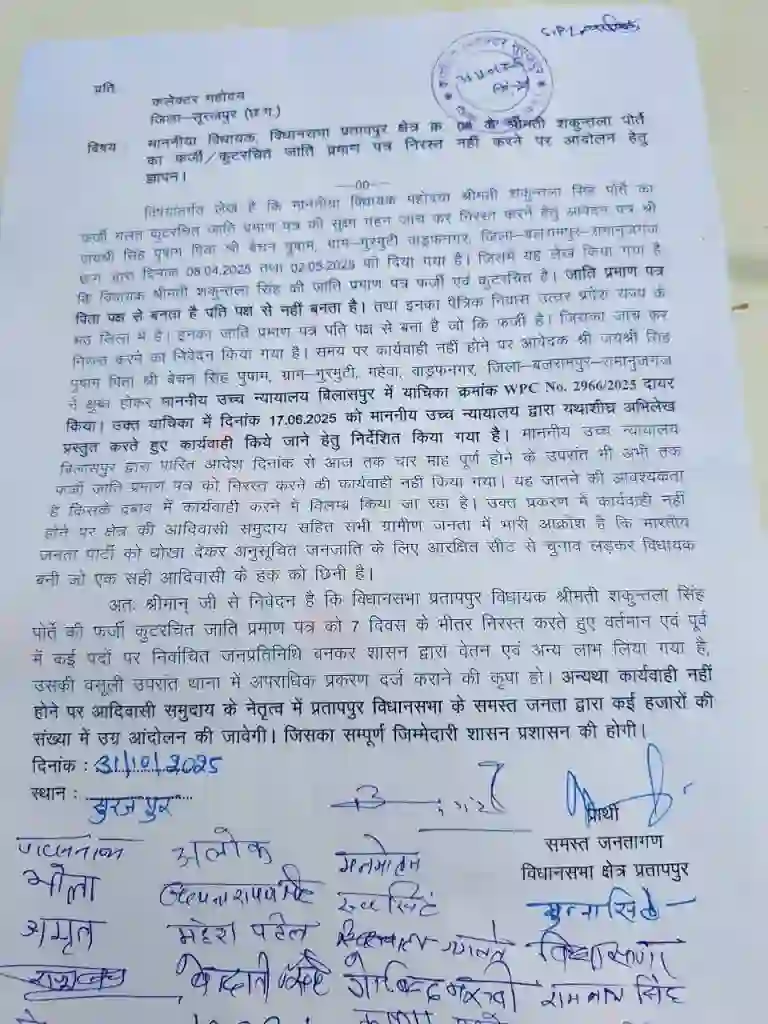 प्रति
कलेक्टर महोदय
जिला–सूरजपुर (छ.ग.)
विषय माननीया विधायक, विधानसभा प्रतापपुर क्षेत्र क्र. 06 के श्रीमती शकुन्तला पोर्ते
का फर्जी/कुटरचित जाति प्रमाण पत्र निरस्त नहीं करने पर आंदोलन हेतु
ज्ञापन।
—00—
विषयांतर्गत लेख है कि माननीया विधायक महोदया श्रीमती शकुन्तला सिंह पोर्ते का
फर्जी गलत कुटरचित जाति प्रमाण पत्र की सुक्ष्म गहन जांच कर निरस्त करने हेतु आवेदन पत्र श्री
जयश्री सिंह पुषाम पिता श्री बेचन पुषाम, ग्राम–गुरमुटी वाड्रफनगर, जिला–बलरामपुर–रामानुजगंज
द्वारा दिनांक 08.04.2025 तथा 02.05.2025 को दिया गया है। जिसमें यह लेख किया गया है
कि विधायक श्रीमती शकुन्तला सिंह की जाति प्रमाण पत्र फर्जी एवं कुटरचित है। जाति प्रमाण पत्र
पिता पक्ष से बनता है पति पक्ष से नहीं बनता है। तथा इनका पैत्रिक निवास उत्तर प्रदेश राज्य के
जिला में है। इनका जाति प्रमाण पत्र पति पक्ष से बना है जो कि फर्जी है। जिसका जांच कर
निरस्त करने का निवेदन किया गया है। समय पर कार्यवाही नहीं होने पर आवेदक श्री जयश्री सिंह
पुषाम पिता श्री बेचन सिंह पुषाम, ग्राम–गुरमुटी, महेवा, वाड्रफनगर, जिला–बलरामपुर–रामानुजगंज
ने क्षुब्ध होकर माननीय उच्च न्यायालय बिलासपुर में याचिका क्रमांक WPC No. 2966/2025 दायर
किया। उक्त याचिका में दिनांक 17.06.2025 को माननीय उच्च न्यायालय द्वारा यथाशीघ्र अभिलेख
प्रस्तुत करते हुए कार्यवाही किये जाने हेतु निर्देशित किया गया है। माननीय उच्च न्यायालय
बिलासपुर द्वारा पारित आदेश दिनांक से आज तक चार माह पूर्ण होने के उपरांत भी अभी तक
फर्जी जाति प्रमाण पत्र को निरस्त करने की कार्यवाही नहीं किया गया। यह जानने की आवश्यकता
है किसके दबाव में कार्यवाही करने में विलम्ब किया जा रहा है। उक्त प्रकरण में कार्यवाही नहीं
होने पर क्षेत्र की आदिवासी समुदाय सहित सभी ग्रामीण जनता में भारी आक्रोश है कि भारतीय
जनता पार्टी को धोखा देकर अनुसूचित जनजाति के लिए आरक्षित सीट से चुनाव लड़कर विधायक
बनी जो एक सही आदिवासी के हक को छिनी है।
अतः श्रीमान् जी से निवेदन है कि विधानसभा प्रतापपुर विधायक श्रीमती शकुन्तला सिंह
पोर्ते की फर्जी कुटरचित जाति प्रमाण पत्र को 7 दिवस के भीतर निरस्त करते हुए वर्तमान एवं पूर्व
में कई पदों पर निर्वाचित जनप्रतिनिधि बनकर शासन द्वारा वेतन एवं अन्य लाभ लिया गया है,
उसकी वसूली उपरांत थाना में अपराधिक प्रकरण दर्ज कराने की कृपा हो। अन्यथा कार्यवाही नहीं
होने पर आदिवासी समुदाय के नेतृत्व में प्रतापपुर विधानसभा के समस्त जनता द्वारा कई हजारों की
संख्या में उग्र आंदोलन की जावेगी। जिसका सम्पूर्ण जिम्मेदारी शासन प्रशासन की होगी।
दिनांक : 31/10/2025
स्थान : सुरजपुर
प्रार्थी
समस्त जनतागण
विधानसभा क्षेत्र प्रतापपुर
अलोक मनमोहन
भोला मुन्ना सिंह
अमृत महेश पटेल
रामनाथ सिंह